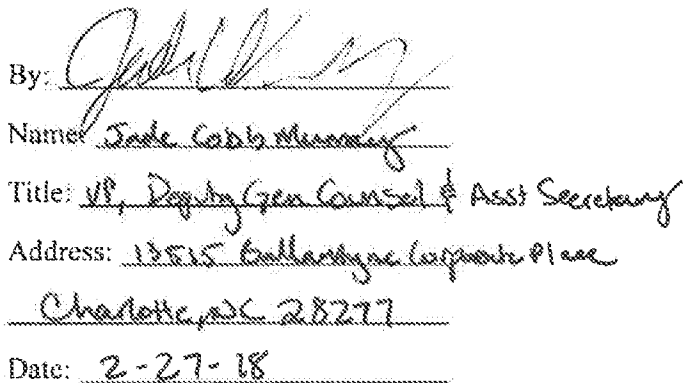 By:
Name: Jade Cobb Murray
Title: VP, Deputy Gen Counsel & Asst Secretary
Address: 13515 Ballantyne Corporate Place
Charlotte, NC 28277
Date: 2-27-18